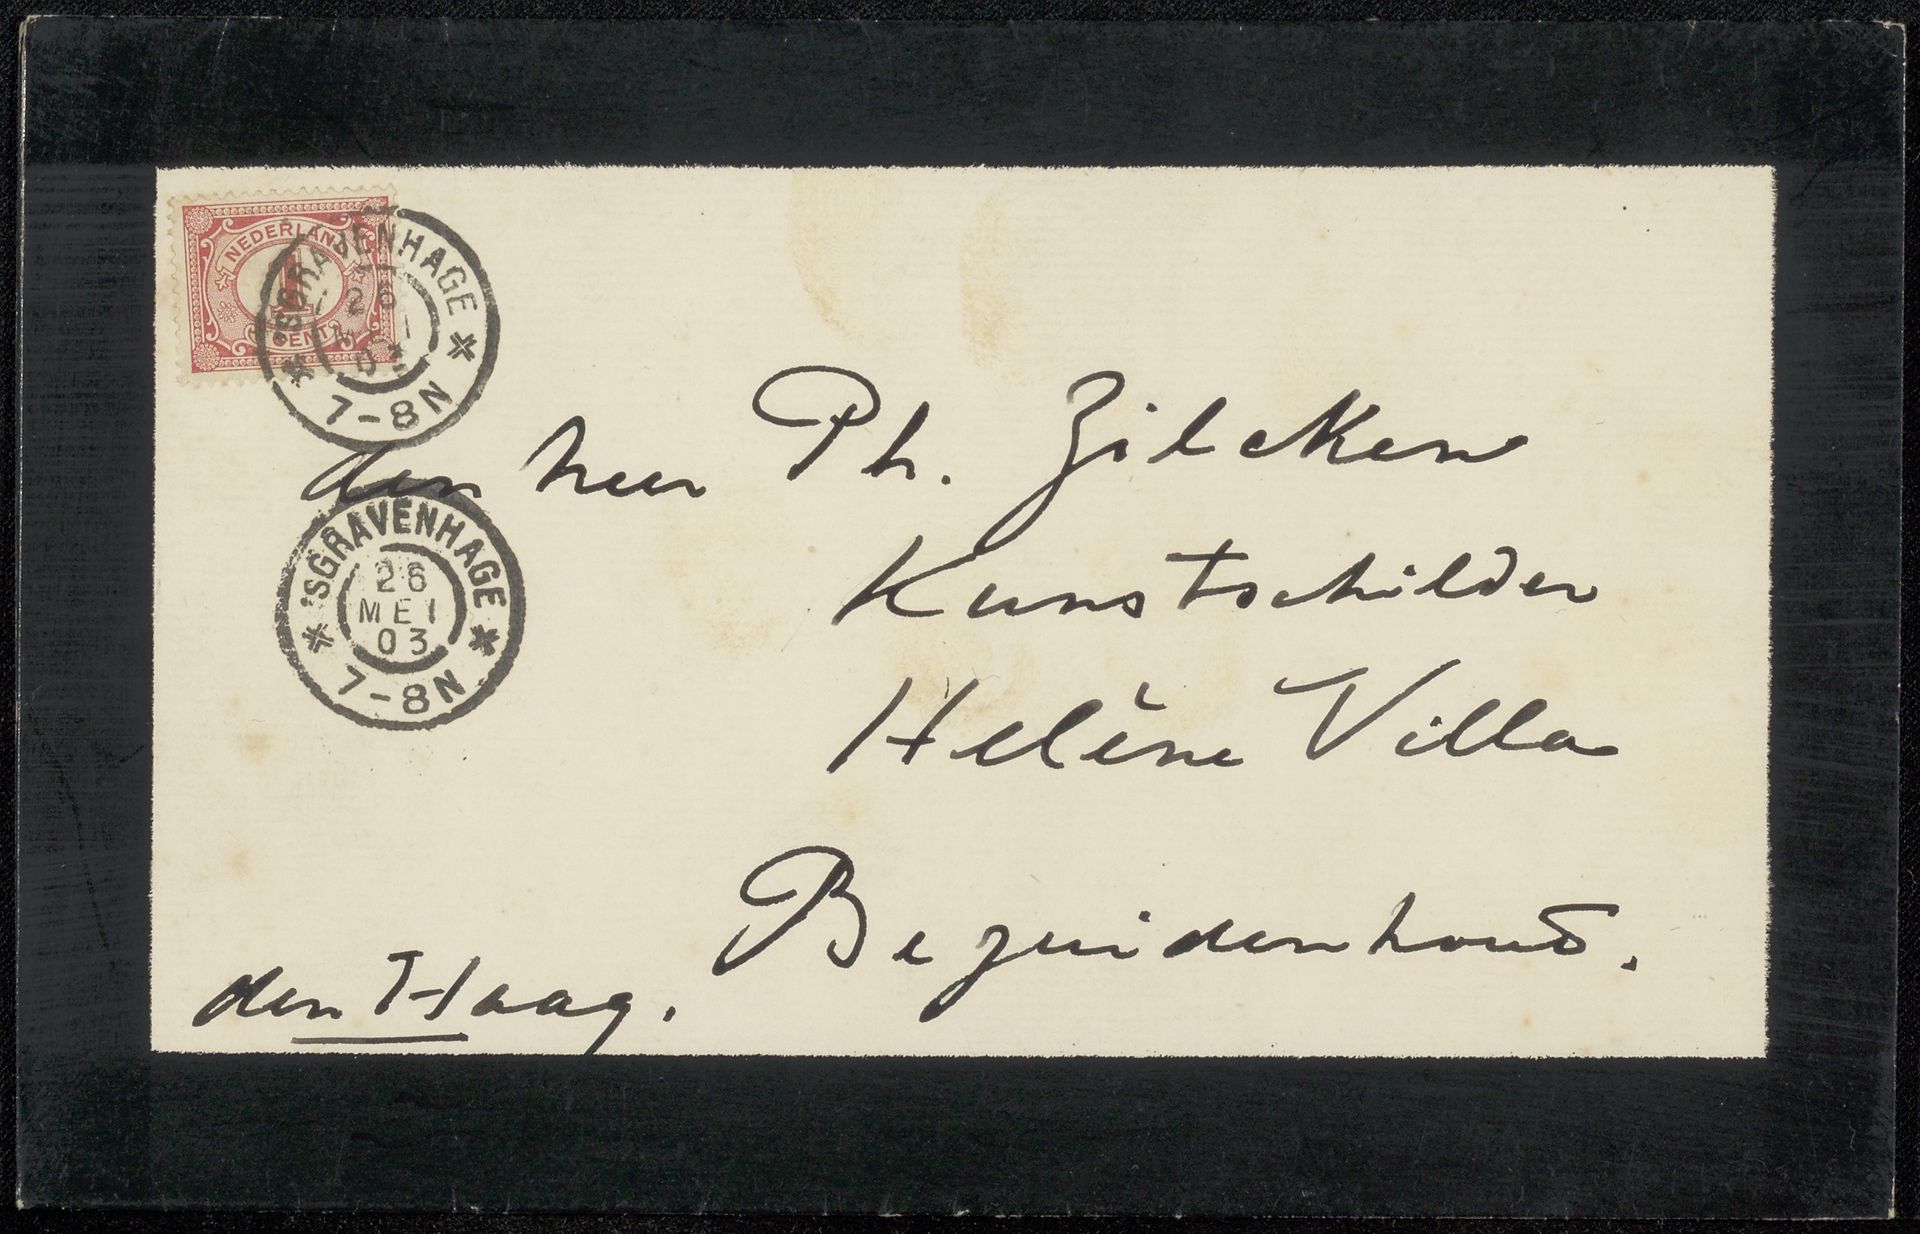 NEDERLAND
1
CENT
'SGRAVENHAGE
26
MEI
03
7-8N
den heer Ph. Zilcken
'SGRAVENHAGE
26
MEI
03
7-8N
Kunstschilder
Helène Villa
Bezuidenhout.
den Haag.